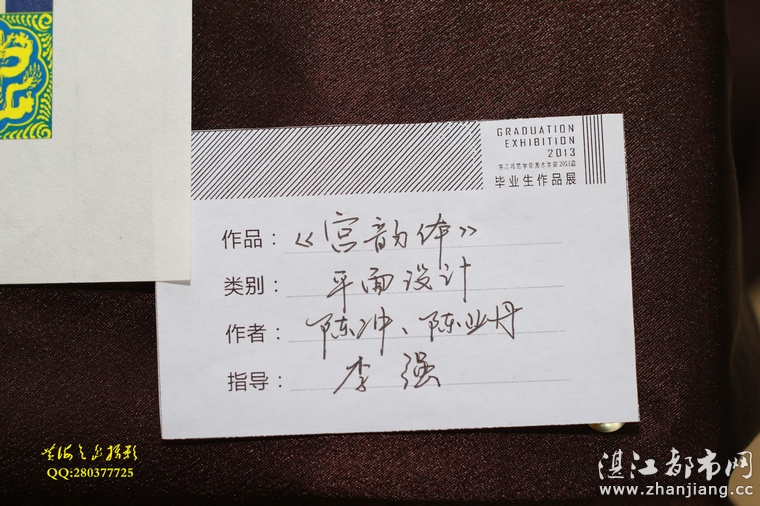 GRADUATION
EXHIBITION
2013
毕业生作品展
作品：《宫韵体》
类别：平面设计
作者：陈冲、陈业丹
指导：李强
QQ:280377725
湛江都市网
www.zhanjiang.cc